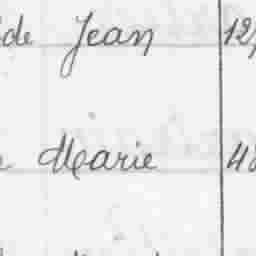 de Jean 12
Marie 48